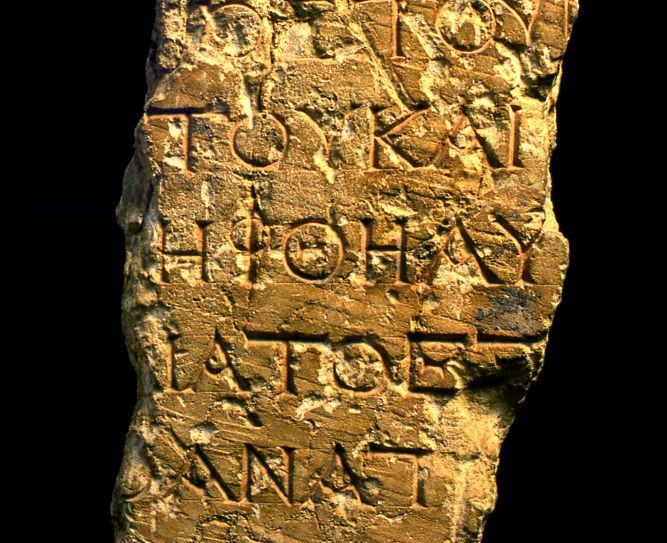 ΟΣΤΟΥ
ΤΟΥΚΑΙ
ΗΦΘΗΑΥ
ΙΑΤΟΕ
ΑΝΑΤ